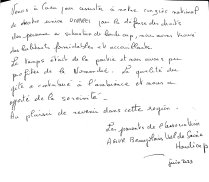 Venus à Caen pour assister à notre congrès national
de notre union UNAPEI pour la défense des droits
des personnes en situation de handicap, nous avons trouvé
des habitants formidables et accueillants.
Le temps était de la partie et nous avons pu
profiter de la Normandie. La qualité du
gîte a contribué à l'ambiance et nous a
apporté de la sérénité.
Au plaisir de revenir dans cette région.
Les parents de l'association
Handicap
Juin